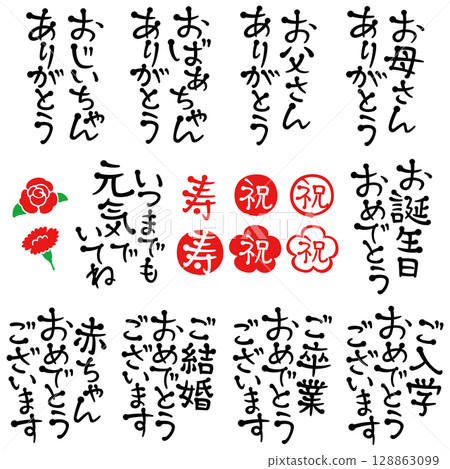 お母さん
ありがとう
お父さん
ありがとう
おばぁちゃん
ありがとう
おじいちゃん
ありがとう
お誕生日
おめでとう
祝
祝
寿
祝
祝
寿
いつまでも
元気で
いてね
ご入学
おめでとう
ございます
ご卒業
おめでとう
ございます
ご結婚
おめでとう
ございます
赤ちゃん
おめでとう
ございます
128863099